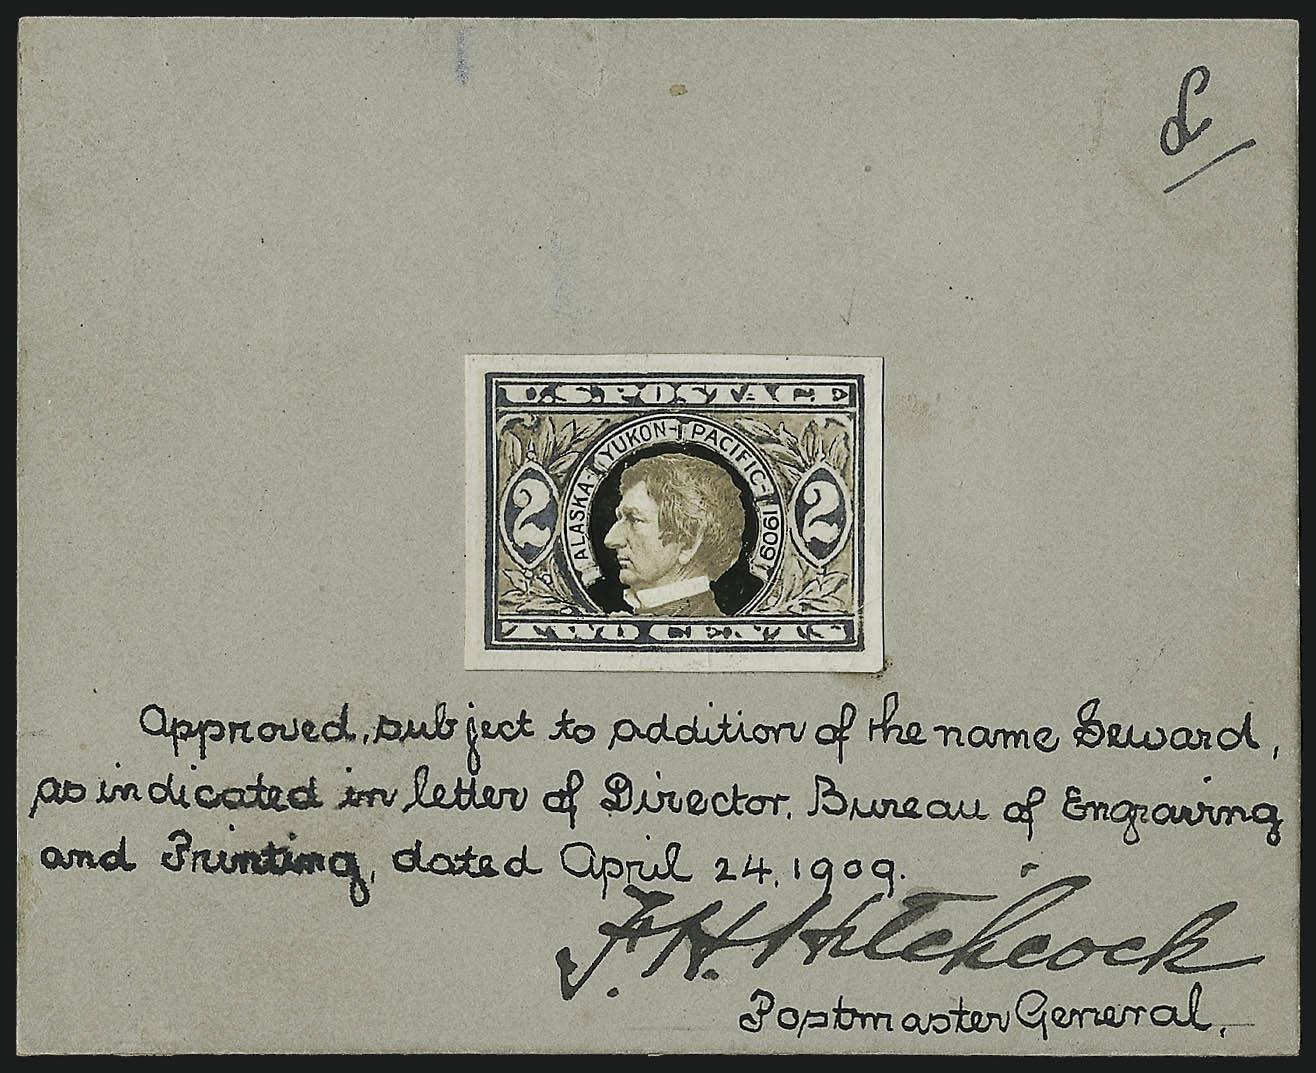 U.S. POSTAGE
ALASKA-YUKON-PACIFIC-1909
2 2
TWO CENTS
Approved, subject to addition of the name Seward,
as indicated in letter of Director, Bureau of Engraving
and Printing, dated April 24, 1909.
F. H. Hitchcock
Postmaster General.